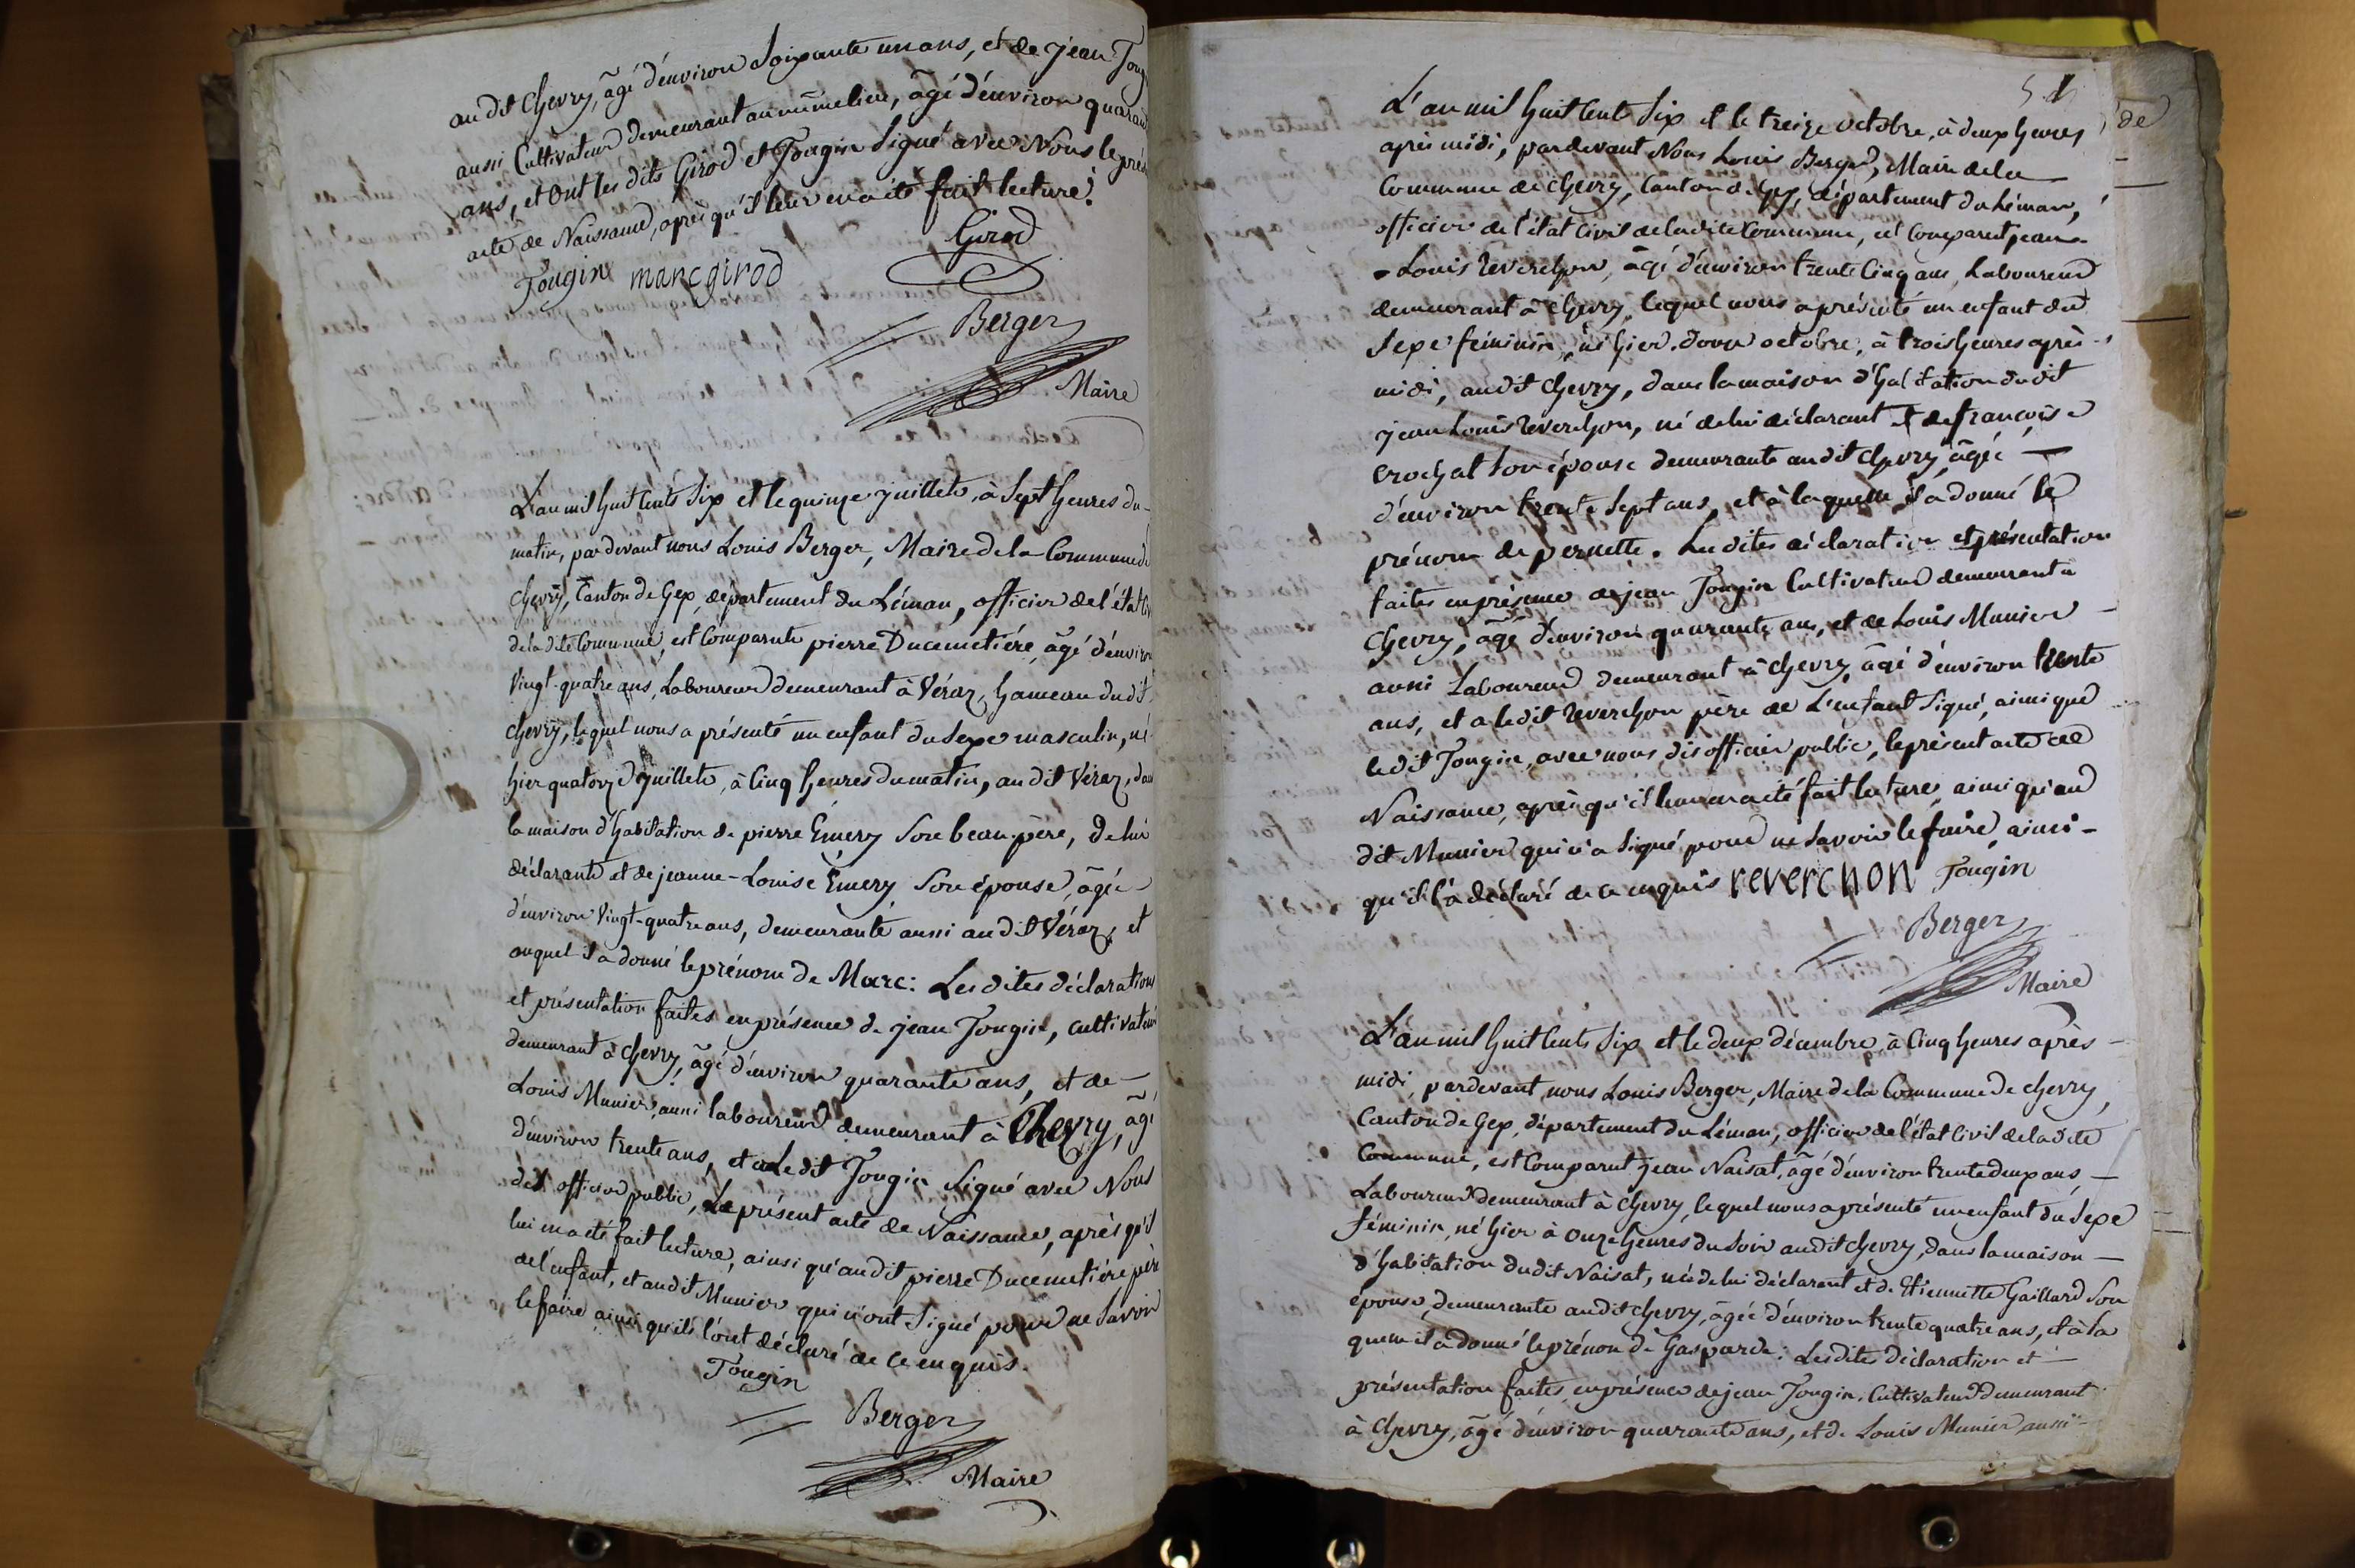 au dit Chevry, âgé d'environ Soixante un ans, et de jean Toug
aussi Cultivateur demeurant au même lieu, âgé d'environ quaran
ans, et Ont les dits Girod et Tougin Signé avec Nous le prés
acte de Naissance, après qu'il leur en a été fait lecture.
Girod
Tougin marc girod
Berger
Maire
L'an mil huit cents Six et le quinze juillet, à Sept heures du
matin, par devant nous Louis Berger, Maire de la Commune de
Chevry, Canton de Gex, département du Léman, officier de l'état Ci
de la dite Commune, est Comparut pierre Ducimetiére, âgé d'environ
Vingt-quatre ans, Laboureur demeurant à Véraz, hameau du dit
Chevry, lequel nous a présenté un enfant du Sexe masculin, né
hier quatorze juillet, à Cinq heures du matin, au dit Véraz, dans
la maison d'habitation de pierre Emery Son beau-père, de lui
déclarant et de jeanne-Louise Emery Son épouse, âgée
d'environ Vingt-quatre ans, demeurante aussi au dit Véraz, et
auquel il a donné le prénom de Marc: Les dites déclaration
et présentation faites en présence de jean Tougin, cultivateur
demeurant à Chevry, âgé d'environ quarante ans, et de
Louis Munier, aussi laboureur demeurant à Chevry, âgé
d'environ trente ans, et a Le dit Tougin Signé avec Nous
dit officier public, Le présent acte de Naissance, après qu'il
lui en a été fait lecture, ainsi qu'au dit pierre Ducimetiére père
de l'enfant, et au dit Munier qui n'ont Signé pour ne Savoir
le faire ainsi qu'ils l'ont déclaré de ce enquis.
Tougin
Berger
Maire
L'an mil huit cents Six et le treize octobre, à deux heures
après midi, pardevant Nous Louis Berger, Maire de la
Commune de Chevry, Canton de Gex, département du Léman,
officier de l'état Civil de ladite Commune, est Comparut jean
Louis Reverchon, âgé d'environ trente Cinq ans, Laboureur
demeurant à Chevry, lequel nous a présenté un enfant du
Sexe féminin, né hier douze octobre, à trois heures après
midi, au dit Chevry, dans la maison d'habitation du dit
jean Louis Reverchon, né de lui déclarant et de françoise
Crochat Son épouse demeurante au dit Chevry, âgée
d'environ trente Sept ans, et à laquelle il a donné le
prénom de pernette. Les dites déclaration et présentation
faites en présence de jean Tougin Cultivateur demeurant à
Chevry, âgé d'environ quarante ans, et de Louis Munier
aussi Laboureur demeurant à Chevry, âgé d'environ trente
ans, et a ledit Reverchon père de L'enfant Signé, ainsi que
le dit Tougin, avec nous dit officier public, le présent acte de
Naissance, après qu'il leur en a été fait lecture, ainsi qu'au
dit Munier qui n'a Signé pour ne Savoir le faire, ainsi
qu'il l'a déclaré de ce enquis reverchon Tougin
Berger
Maire
L'an mil huit cents Six et le deux décembre, à Cinq heures après
midi, pardevant nous Louis Berger, Maire de la Commune de Chevry,
Canton de Gex, département du Léman, officier de l'état Civil de la dite
Commune, est Comparut jean Naisat, âgé d'environ trente deux ans
Laboureur demeurant à Chevry, lequel nous a présenté un enfant du Sexe
féminin, né hier à onze heures du Soir au dit Chevry, dans la maison
d'habitation du dit Naisat, née de lui déclarant et de Etiennette Gaillard Son
épouse, demeurante au dit Chevry, âgée d'environ trente quatre ans, et à la
quelle il a donné le prénom de Gasparde: Les dites déclaration et
présentation faites en présence de jean Tougin, Cultivateur demeurant
à Chevry, âgé d'environ quarante ans, et de Louis Munier, aussi